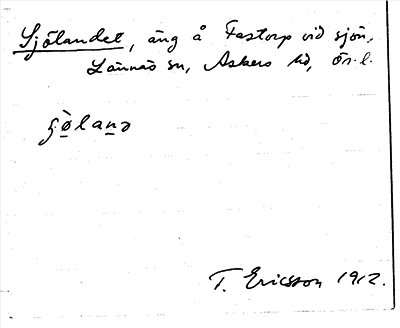 Sjölandet, äng å Fastorp vid sjön,
Lännäs sn, Askers hd, Ör. l.
ʂø̀lanə
T. Ericsson 1912.